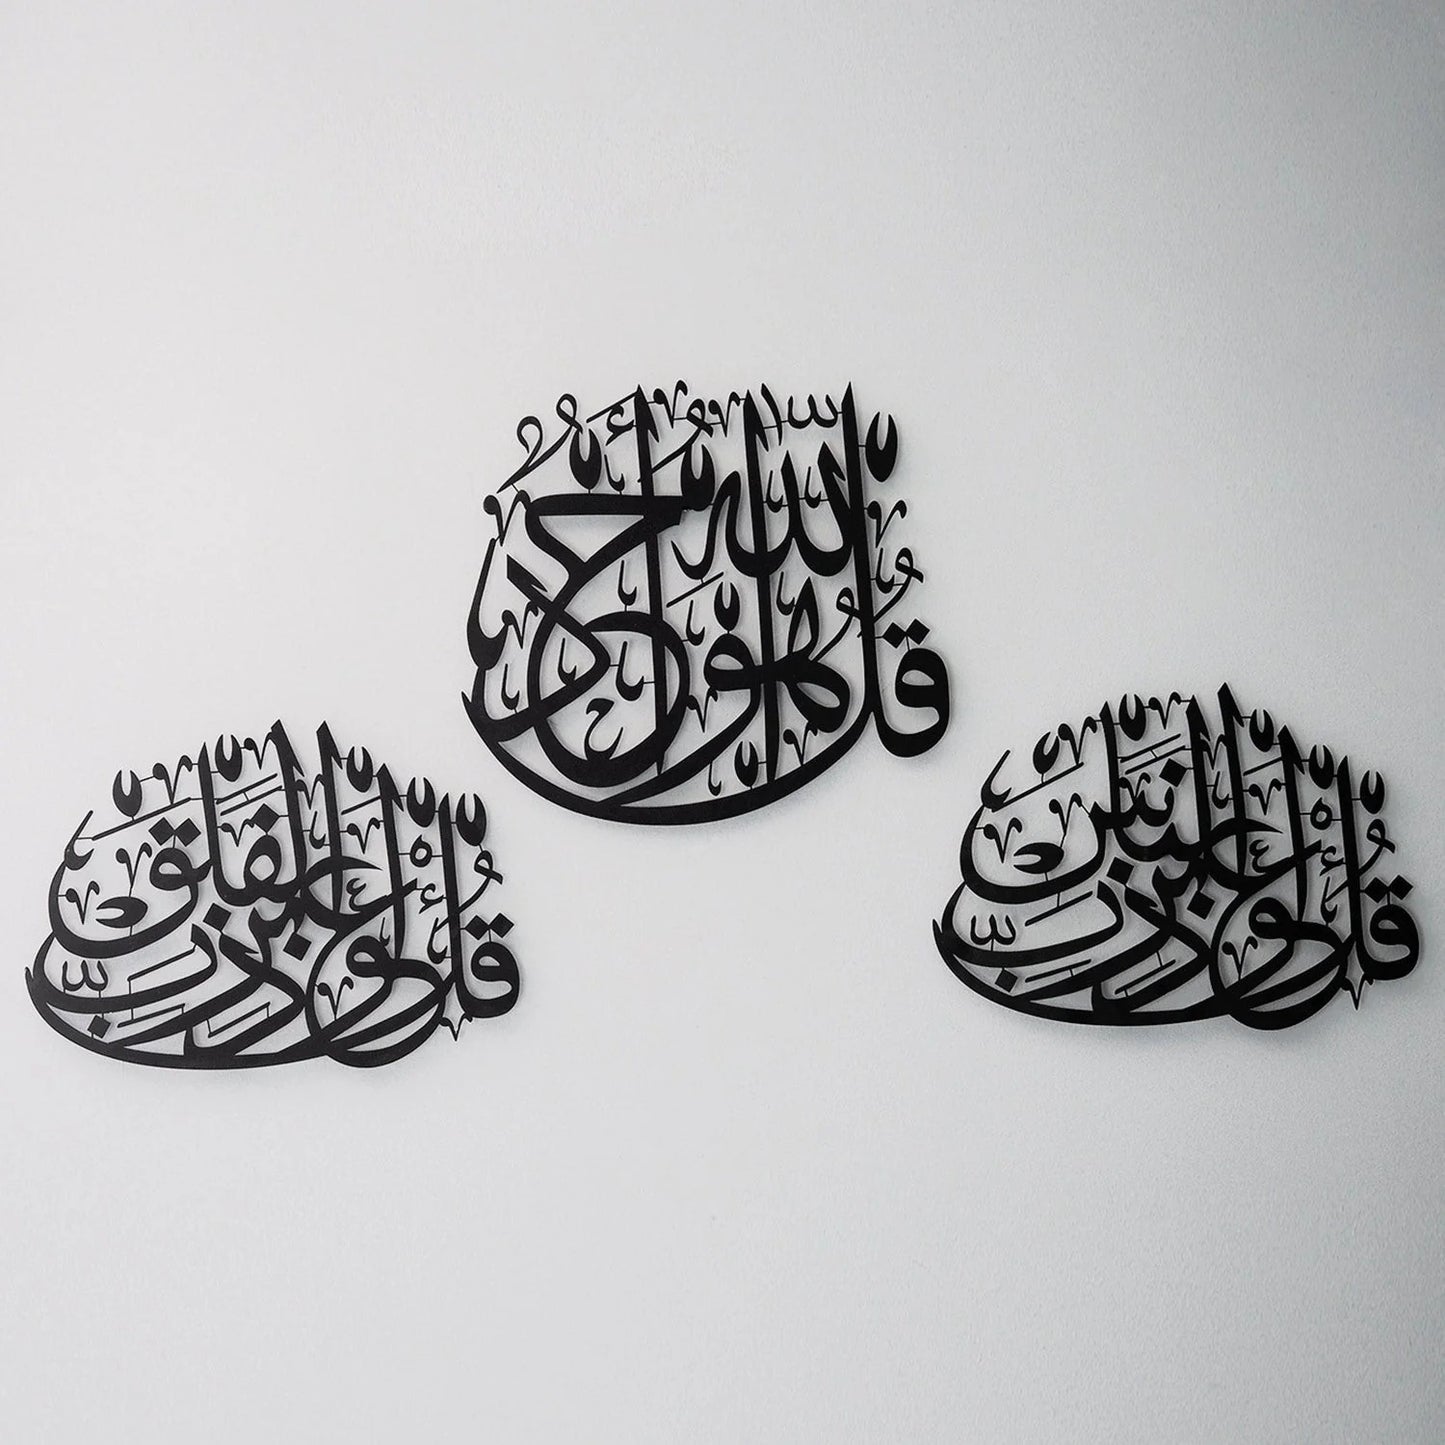 قُلْ هُوَ اللّٰهُ أَحَدٌ
قُلْ أَعُوذُ بِرَبِّ الْفَلَقِ
قُلْ أَعُوذُ بِرَبِّ النَّاسِ